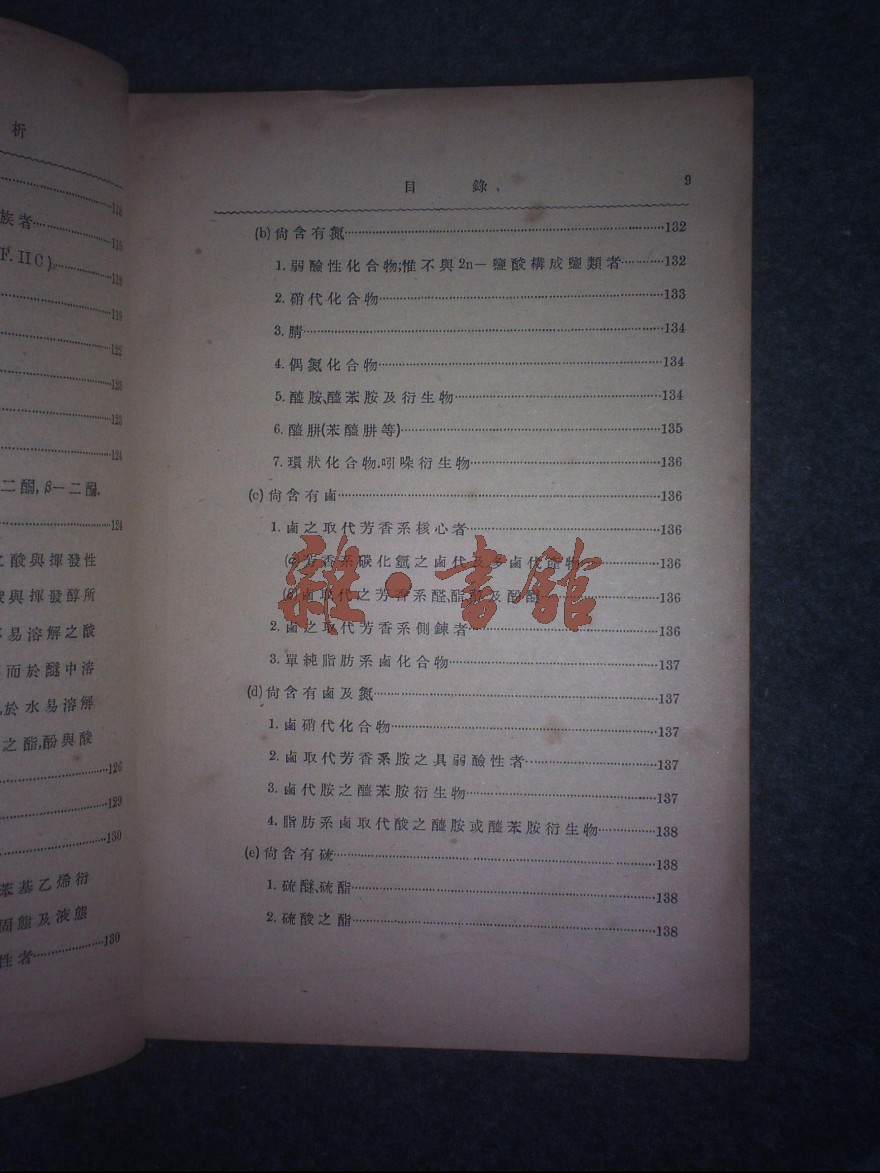 析
118
族者 118
F. II C) 119
119
122
123
123
124
二酮, β—二酮,
124
之酸與揮發性
酸與揮發醇所
易溶解之酸
而於醚中溶
於水易溶解
之酯,酚與酸
126
129
130
苯基乙烯衍
固態及液態
性者 130
目 錄 9
(b) 尙含有氮 132
1. 弱鹼性化合物;惟不與2n—鹽酸構成鹽類者 132
2. 硝代化合物 133
3. 腈 134
4. 偶氮化合物 134
5. 醯胺、醯苯胺及衍生物 134
6. 醯肼(苯醯肼等) 135
7. 環狀化合物.吲哚衍生物 136
(c) 尙含有鹵 136
1. 鹵之取代芳香系核心者 136
芳香系碳化氫之鹵代及多鹵代產物 136
鹵取代之芳香系醛,酯 及 136
2. 鹵之取代芳香系側鍊者 136
3. 單純脂肪系鹵化合物 137
(d) 尙含有鹵及氮 137
1. 鹵硝代化合物 137
2. 鹵取代芳香系胺之具弱鹼性者 137
3. 鹵代胺之醯苯胺衍生物 137
4. 脂肪系鹵取代酸之醯胺或醯苯胺衍生物 138
(e) 尙含有硫 138
1. 硫醚、硫酯 138
2. 硫酸之酯 138
雜·書館